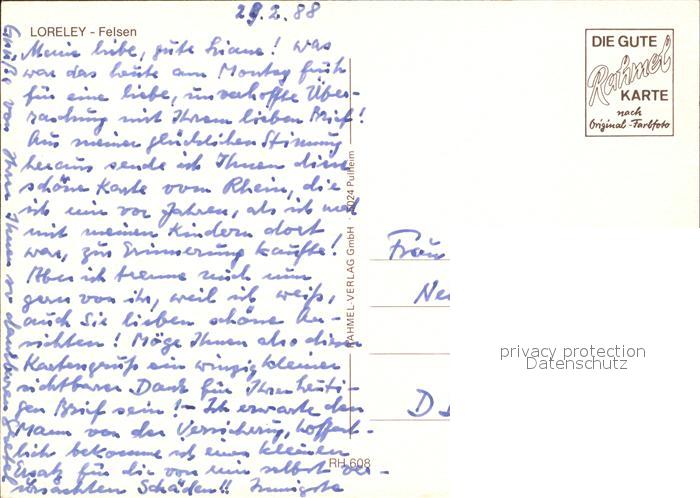 29.2.88
LORELEY - Felsen
Meine liebe, gute Liane! Was
war das heute am Montag früh
für eine liebe, unverhoffte Über-
raschung mit Ihrem lieben Brief!
Aus meiner glücklichen Stimmung
heraus sende ich Ihnen diese
schöne Karte vom Rhein, die
ich mir vor Jahren, als ich mal
mit meinen Kindern dort
war, zur Erinnerung kaufte!
Aber ich trenne mich nun
gern von ihr, weil ich weiß,
auch Sie lieben schöne An-
sichten! Möge Ihnen also dieser
Kartengruß ein winzig kleiner
sichtbarer Dank für Ihren heuti-
gen Brief sein! - Ich erwarte den
Mann von der Versicherung, hoffent-
lich bekomme ich einen kleinen
Ersatz für die von mir selbst ver-
ursachten Schäden!! Innigste
Grüße von Ihrer Ihnen so dankbaren
RAHMEL-VERLAG GmbH 5024 Pulheim
RH 608
DIE GUTE
Rahmel
KARTE
nach
Original-Farbfoto
Frau
Ne
D
privacy protection
Datenschutz